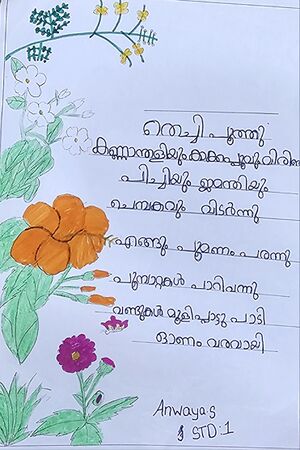 തെച്ചി പൂത്തു
കണ്ണാന്തളിയും കാക്കപ്പൂവു വിരിഞ
പിച്ചിയും ജമന്തിയും
ചെമ്പകവും വിടർന്നു
എങ്ങും പൂമണം പരന്നു
പൂമ്പാറ്റകൾ പാറിവന്നു
വണ്ടുകൾ മൂളിപ്പാട്ടു പാടി
ഓണം വരവായി
Anwaya.s
STD:1